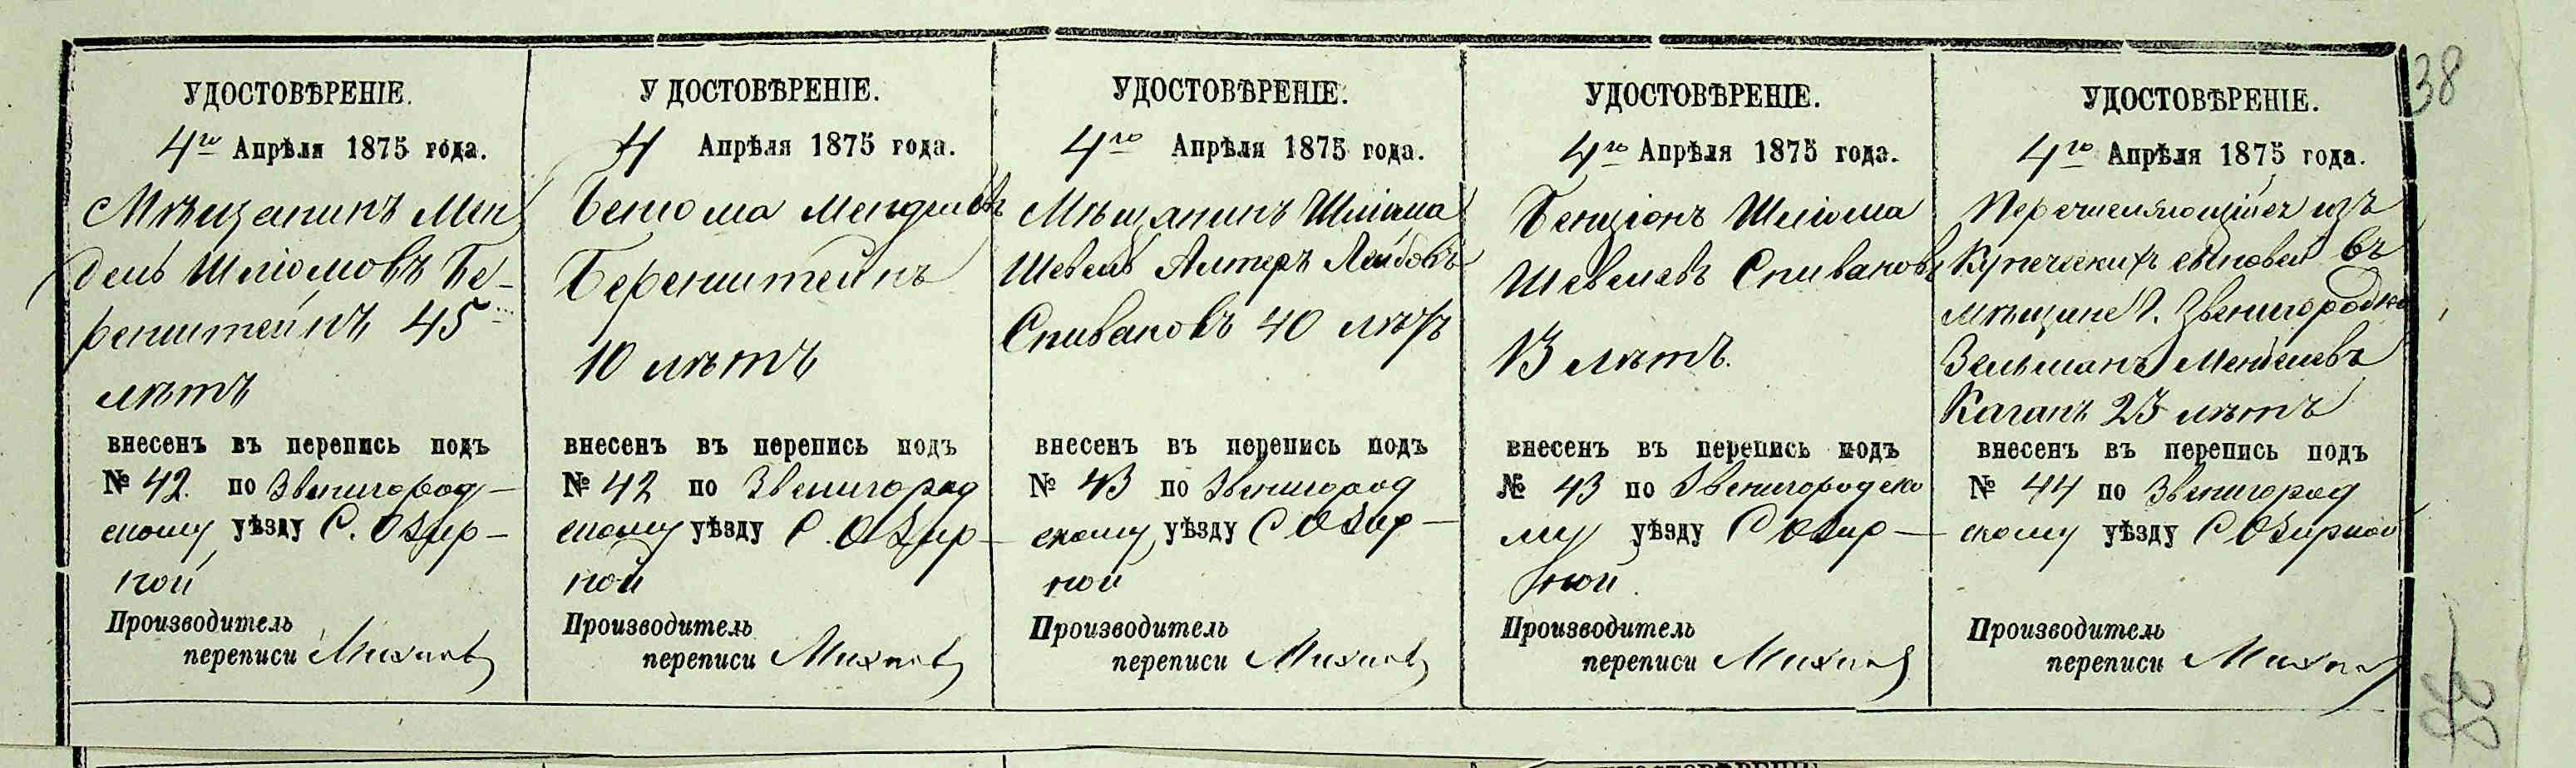 38
УДОСТОВѢРЕНІЕ.
4го Апрѣля 1875 года.
Мѣщанинъ Мен
дель Шліомовъ Бе-
ренштейнъ 45
лѣтъ
внесенъ въ перепись подъ
№ 42. по Звенигород-
скому уѣзду С. Озир-
ной
Производитель
переписи
УДОСТОВѢРЕНІЕ.
4 Апрѣля 1875 года.
Менделевъ
Беренштейнъ
10 лѣтъ
внесенъ въ перепись подъ
№ 42 по Звенигород
скому уѣзду С. Озир-
ной
Производитель
переписи
УДОСТОВѢРЕНІЕ.
4го Апрѣля 1875 года.
Мѣщанинъ Шліома
Шевель Алтеръ Лейбовъ
Спиваковъ 40 лѣтъ
внесенъ въ перепись подъ
№ 43 по Звенигород
скому уѣзду С Озир-
ной
Производитель
переписи
УДОСТОВѢРЕНІЕ.
4го Апрѣля 1875 года.
Бенціонъ Шліома
Шевелевъ Спиваковъ
13 лѣтъ.
внесенъ въ перепись подъ
№ 43 по Звенигородско
му уѣзду С Озир-
ной.
Производитель
переписи
УДОСТОВѢРЕНІЕ.
4го Апрѣля 1875 года.
Перечисляющійся изъ
Купеческихъ сыновей въ
мѣщане г. Звенигородка
Зельманъ Менделевъ
Каганъ 23 лѣтъ
внесенъ въ перепись подъ
№ 44 по Звенигород
скому уѣзду С Озирной
Производитель
переписи